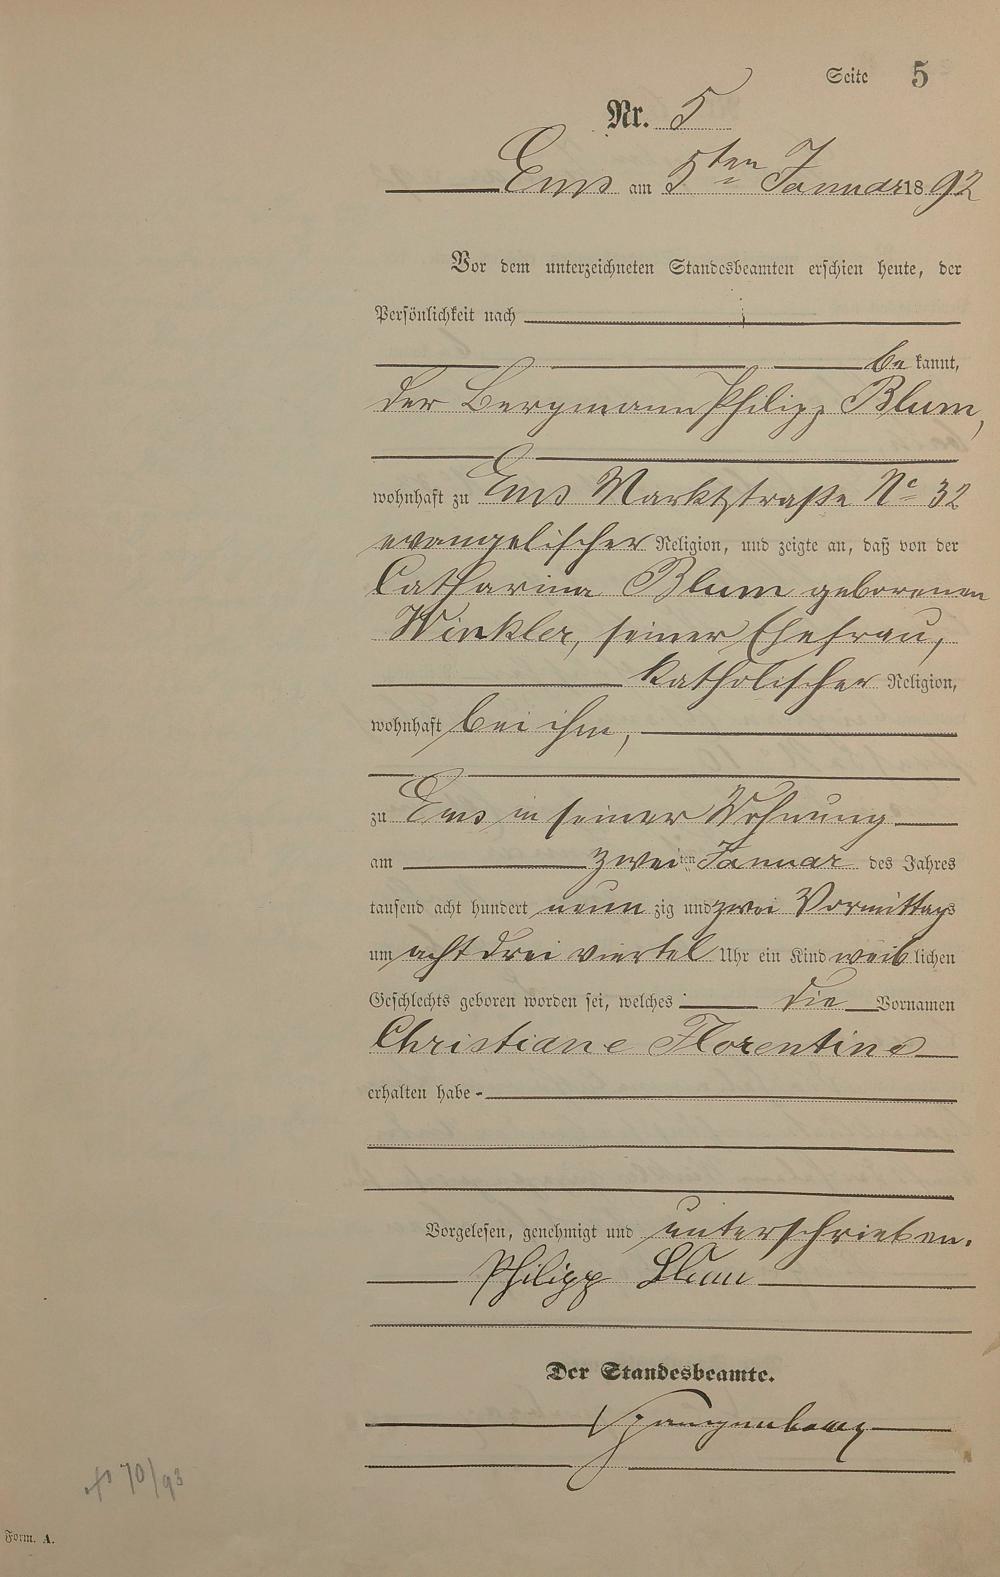 Seite 5
Nr. 5
Ems am 5ten Januar 1892
Vor dem unterzeichneten Standesbeamten erschien heute, der
Persönlichkeit nach
bekannt,
der Bergmann Philipp Blum,
wohnhaft zu Ems Marktstraße No 32
evangelischer Religion, und zeigte an, daß von der
Catharina Blum geborenen
Winkler, seiner Ehefrau,
katholischer Religion,
wohnhaft bei ihm,
zu Ems in seiner Wohnung
am zweiten Januar des Jahres
tausend acht hundert neunzig und zwei Vormittags
um acht drei viertel Uhr ein Kind weiblichen
Geschlechts geboren worden sei, welches die Vornamen
Christiane Florentine
erhalten habe -
Vorgelesen, genehmigt und unterschrieben.
Philipp Blum
Der Standesbeamte.
Spangenberg
70/93
Form. A.